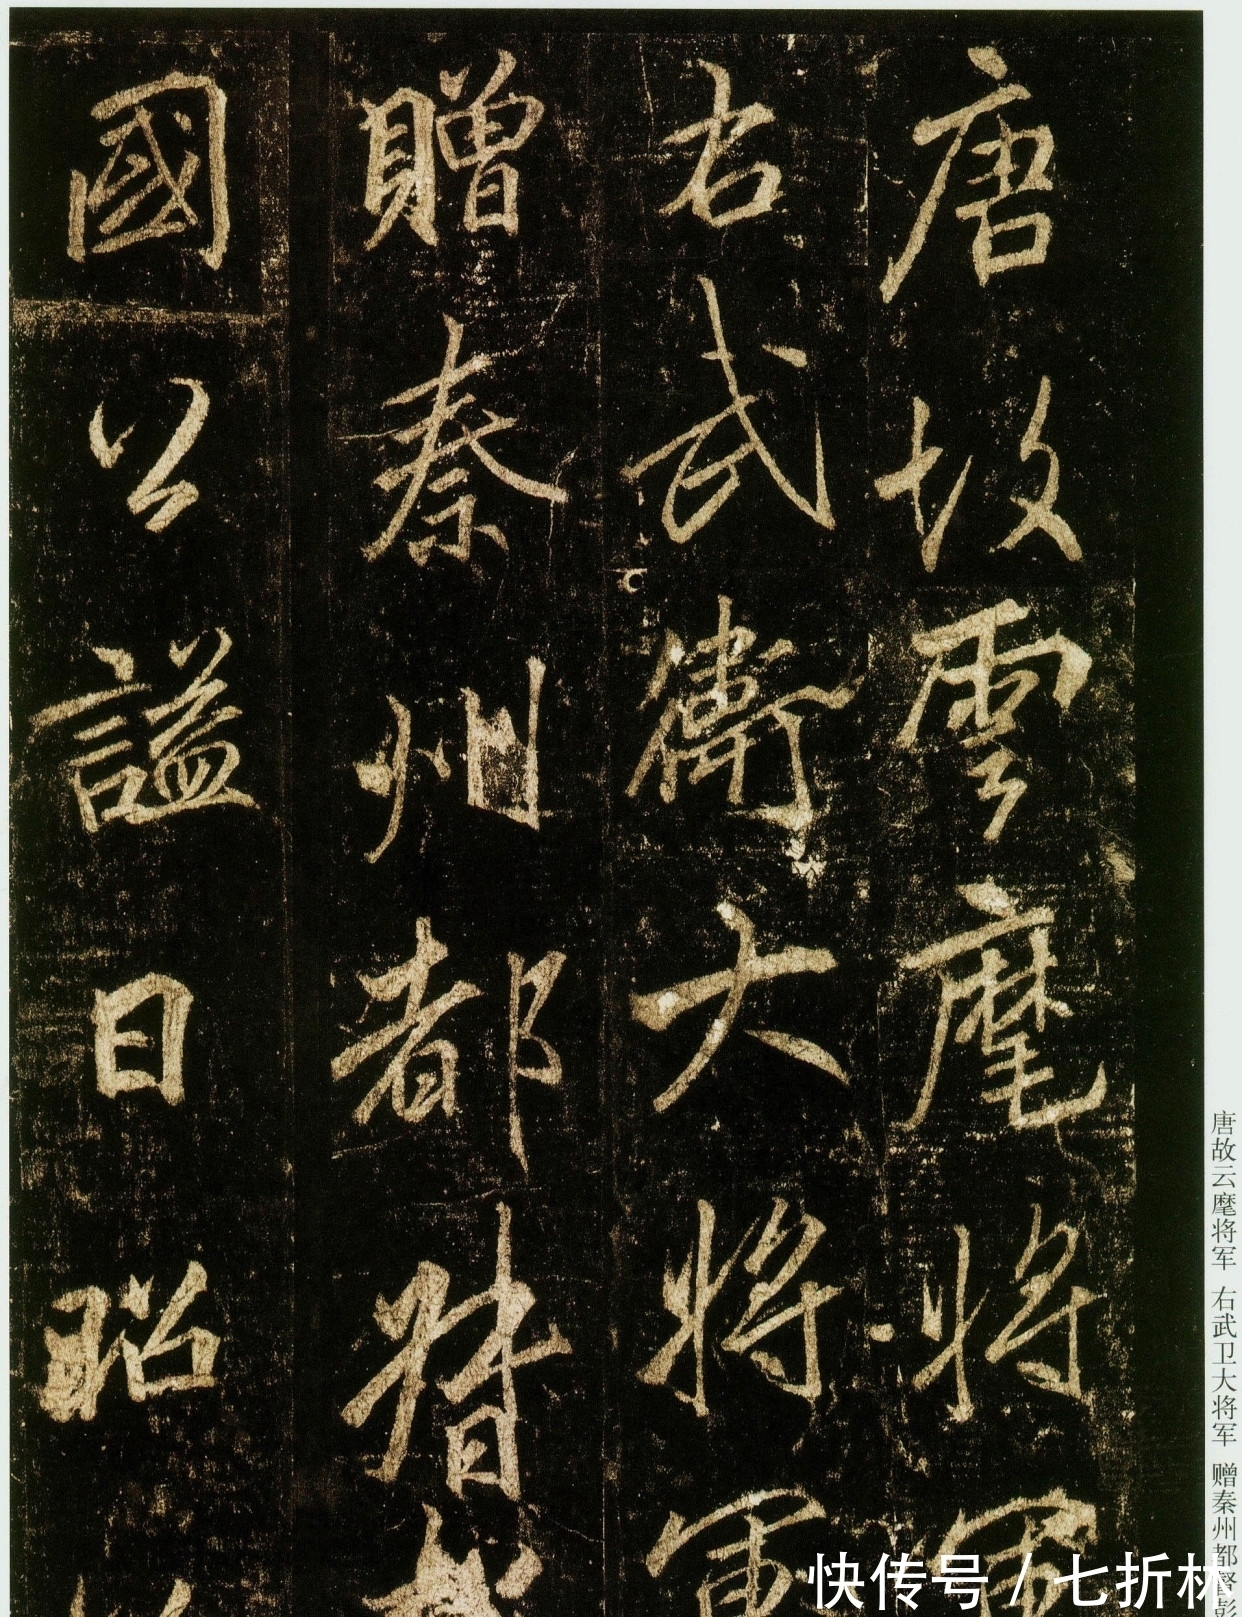 唐故雲麾將軍
右武衛大將軍
贈秦州都督彭
國公謚曰昭公
唐故云麾将军 右武卫大将军 赠秦州都督彭
快传号 / 七折林